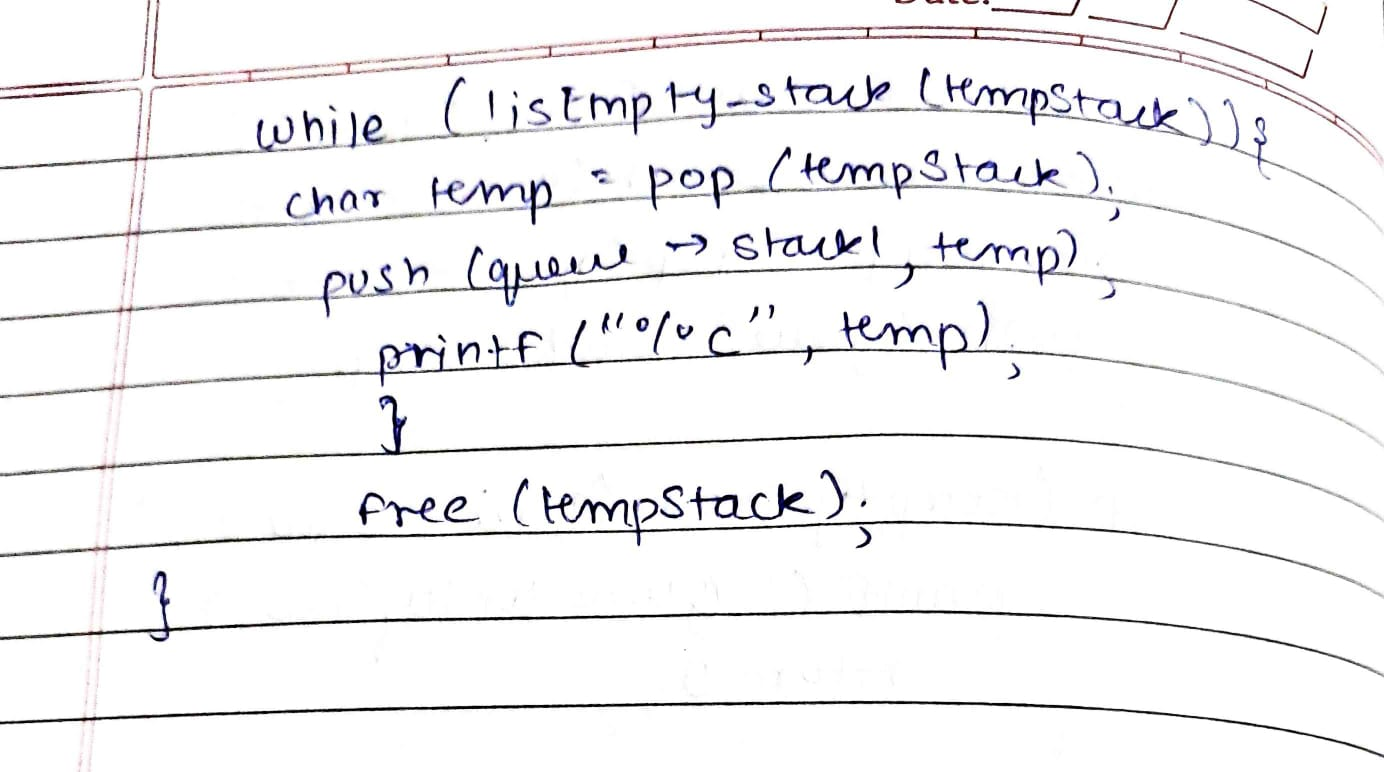 while (!isEmpty-stack (tempStack)){
char temp = pop (tempStack);
push (queue → stack1, temp);
printf ("%c", temp);
}
free (tempStack);
}